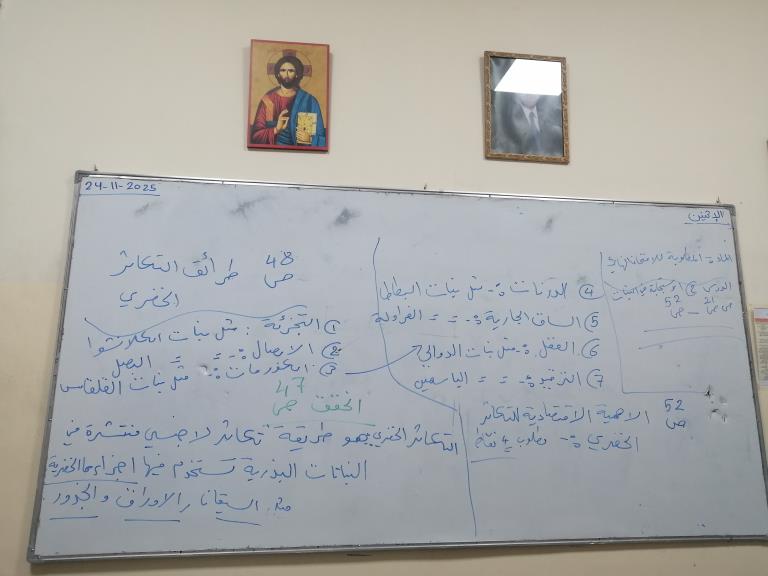 الإثنين
24-11-2025
المادة المطلوبة للامتحان
الدرس
ص 21 - ص 52
ص 48 طرائق التكاثر
الخضري
① التجزئة : مثل نبات
② الابصال :- = = البصل
③ الكورمات :- مثل نبات القلقاس
④ الدرنات :- مثل نبات البطاطا
⑤ الساق الجارية :- = = الفراولة
⑥ العقل :- مثل نبات الدوالي
⑦ الترقيد :- = = الياسمين
ص 52 الاهمية الاقتصادية للتكاثر
الخضري :- مطلوب 4 نقاط
ص 47
التكاثر الخضري :- هو طريقة تكاثر لاجنسي منتشرة في
النباتات البذرية تستخدم فيها اجزاءها الخضرية
مثل السيقان والاوراق والجذور